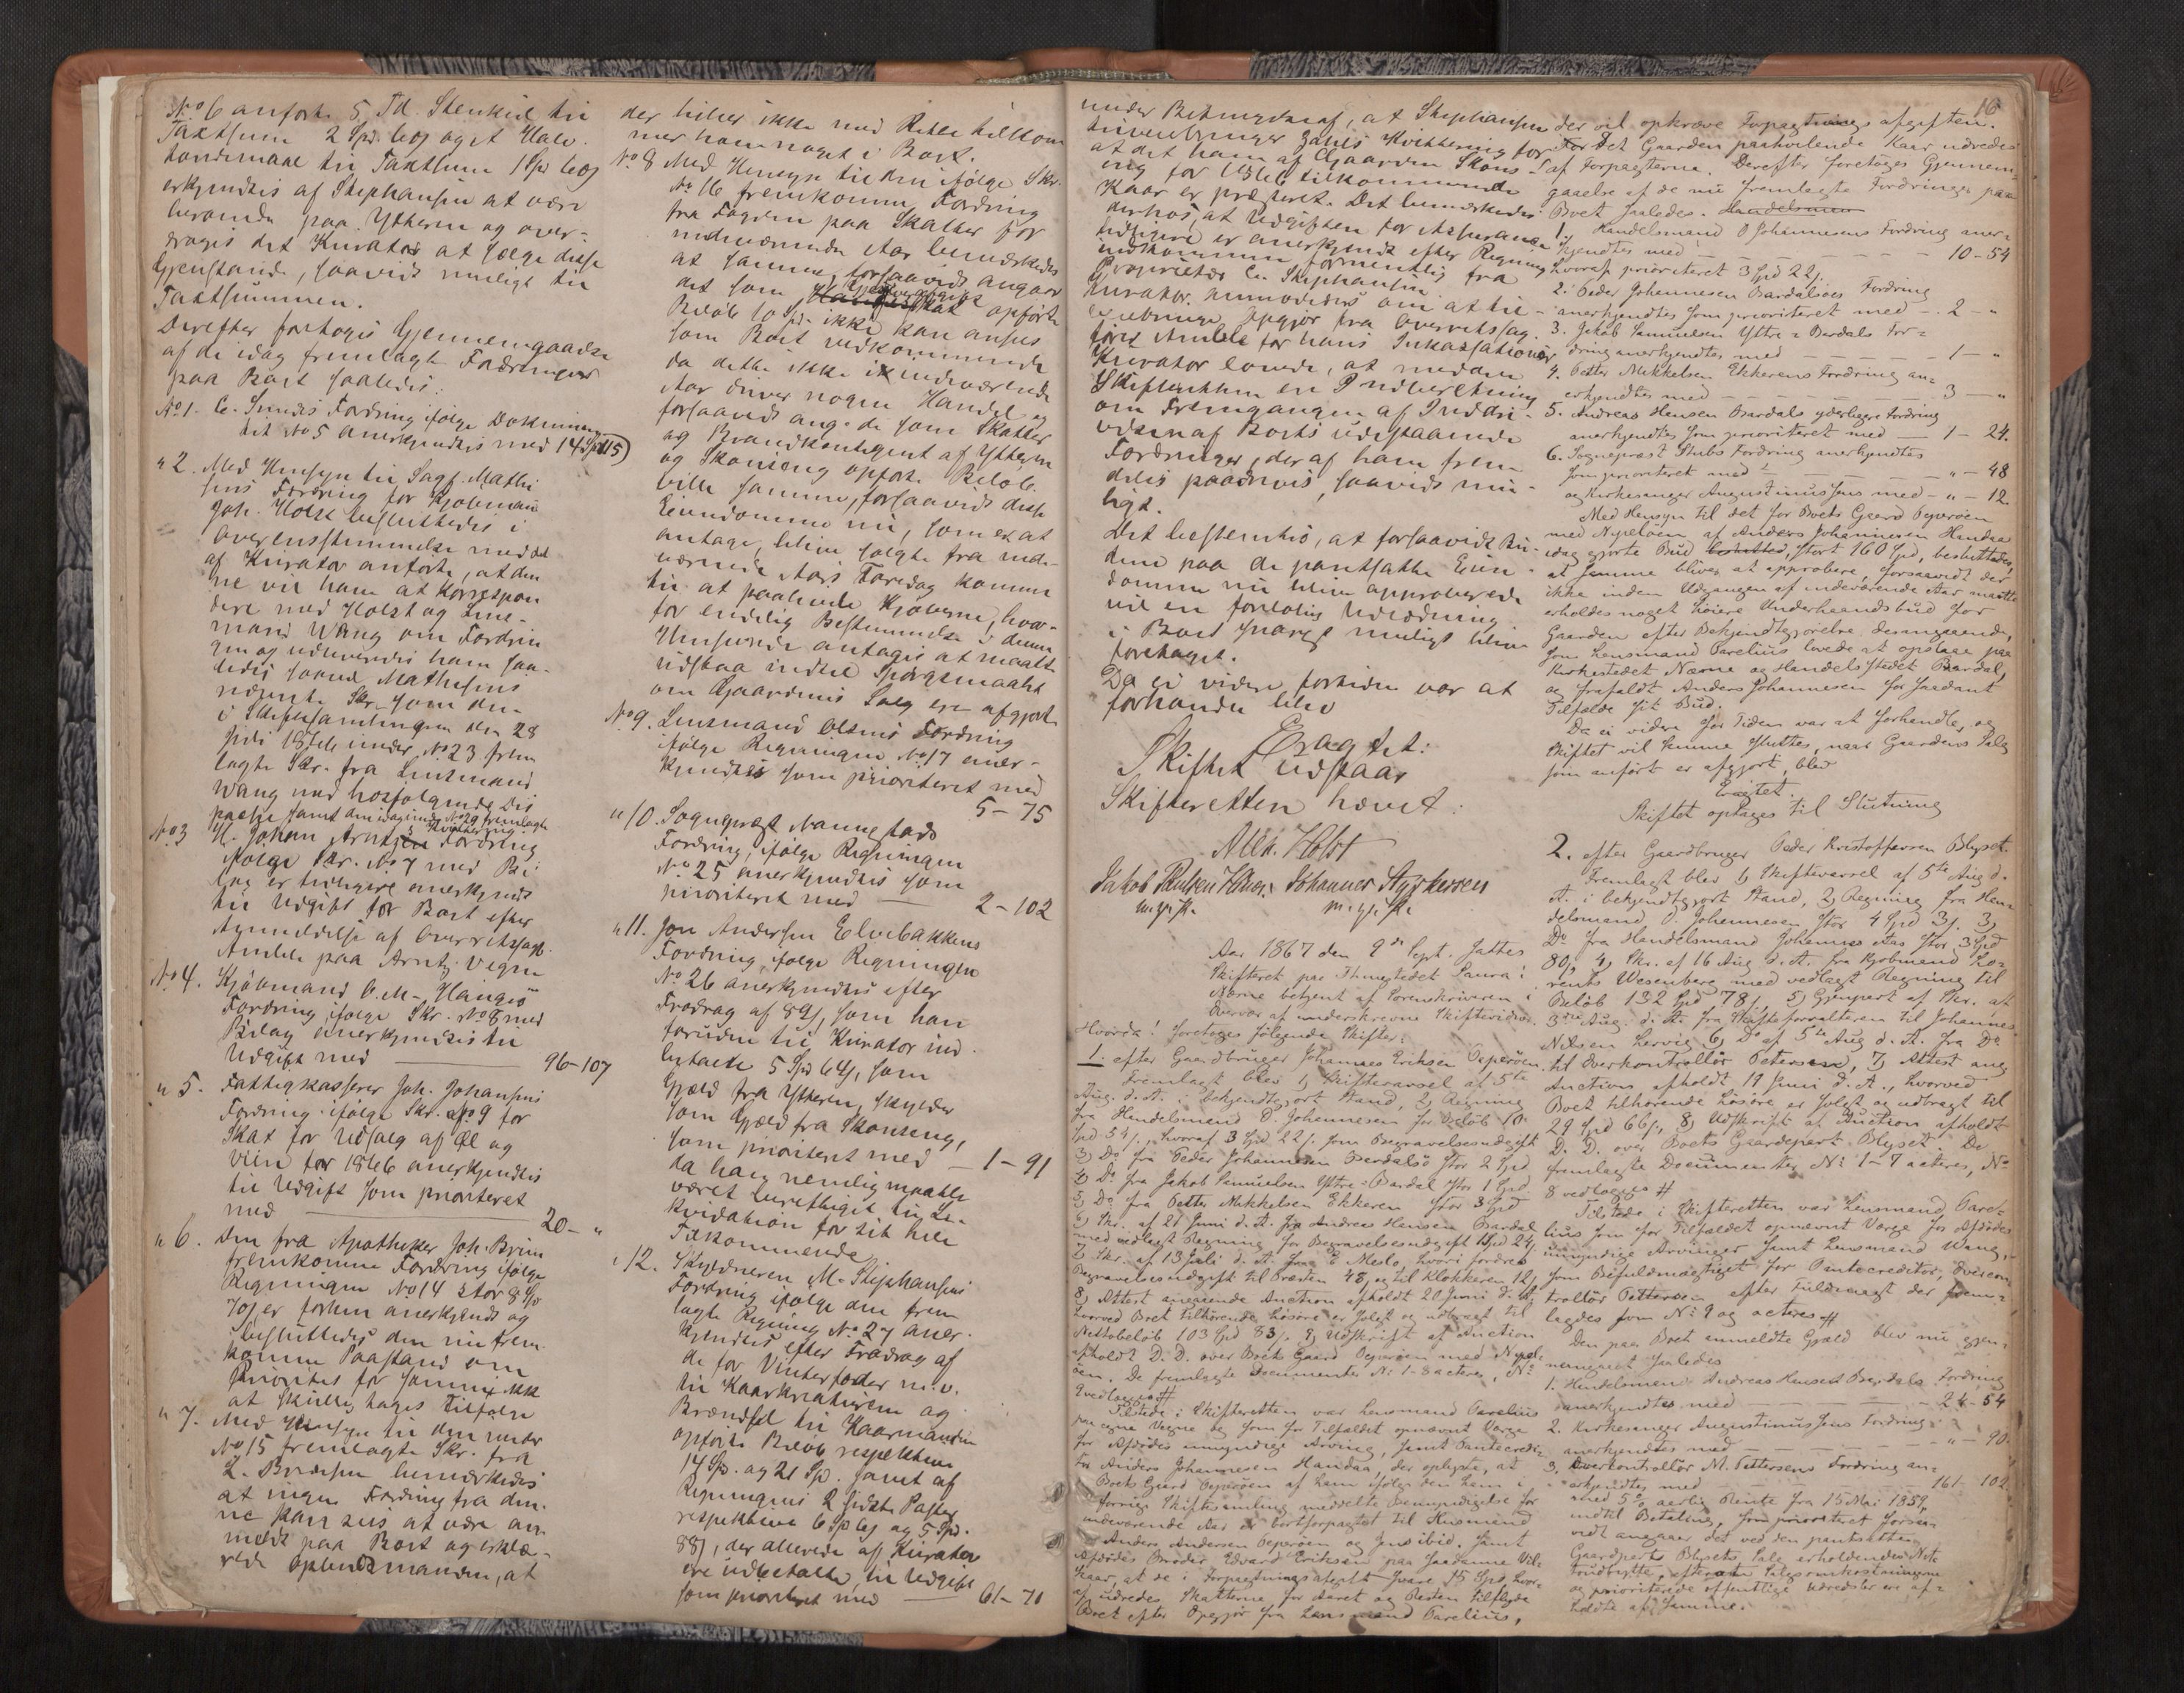 No 6 anførte 5 Td. Stenkul til
Taxtsum 2 Spd. og et Halv.
tøndemaal til Taxtsum 1 Spd
erkjendtes af Stephansen at være
beroende paa Ytteren og over-
droges det Kurator at sælge disse
Gjenstande, saavidt muligt til
Taxtsummen.
Derefter foretoges Gjennemgaaelse
af de idag fremlagte Fordringer
paa Boet saaledes:
No 1. C. Smeds Fordring ifølge Dokumen
tet No 5 anerkjendtes med 14
" 2. Med Hensyn til Sagf. Mathi
sens Fordring for Kjøbmand
Joh. Holst besluttedes i
Overensstemmelse med det
af Kurator anførte, at den
ne vil have at korrespon
dere med Holst og Lens-
mand Wang om Fordrin
gen og udleveredes ham saa-
ledes saavel Mathisens
nævnte Skr. som den
i Skiftesamlingen den 28
Juli 1866 under No 23 frem
lagte Skr. fra Lensmand
Wang med hosfølgende
samt den idag under No 29 fremlagte
Kvittering.
No 3 H. Johan Arntzen Fordring
ifølge Skr. No 7 med Bi
lag er tidligere anerkjendt
til Udgift for Boet efter
Anmeldelse af Overretssagf.
Amble paa Arntz. Vegne
No 4. Kjøbmand O. M. Hanges
Fordring ifølge Skr. No 8 med
Bilag anerkjendtes til
Udgift med 96-107
" 5. Fattigkasserer Joh. Johansens
Fordring ifølge Skr. No 9 for
Skat for Udsalg af Øl og
Viin for 1866 anerkjendtes
til Udgift som prioriteret
med 20- "
" 6. Den fra Apotheker Joh. Brun
fremkomne Fordring ifølge
Regningen No 14 stor 8 Spd
er forhen anerkjendt og
besluttedes den nu frem
komne Paastand om
Prioritet for samme ikke
at skulle tages tilfølge
" 7. Med Hensyn til den under
No 15 fremlagte Skr. fra
L. Brodersen bemærkedes
at ingen Fordring fra den-
ne kan sees at være an
meldt paa Boet og erklæ-
rede Opbudsmanden, at
der heller ikke med Rette tilkom
mer ham noget i Boet.
No 8 Med Hensyn til den ifølge Skr.
No 16 fremkomne Fordring
fra Fogden paa Skatter for
indeværende Aar bemærkedes
at samme, forsaavidt angaar
det som opførte
Beløb 10 Spd. ikke kan ansees
som Boet vedkommende
da dette ikke i indeværende
Aar driver nogen Handel og
forsaavidt ang. de som Skatter
og Brandkontigent af Ytteren
og Skonseng opførte Beløb.
ville samme, forsaavidt disse
Eiendomme nu, som er at
antage, blive solgte fra inde-
værende Aars Faredag komme
til at paahvile Kjøberne, hvor-
for endelig Bestemmelse i denne
Henseende antages at maatte
udstaa indtil Spørgsmaalet
om Gaardenes Salg er afgjort
No 9. Lensmand Olsens Fordring
ifølge Regningen No 17 aner-
kjendtes som prioriteret med
5-75
" 10. Sogneprest Nannestads
Fordring, ifølge Regningen
No 25 anerkjendtes som
prioriteret med 2-102
" 11. Jon Andersen Elvebakkens
Fordring ifølge Regningen
No 26 anerkjendtes efter
Fradrag af 89 s, som han
foruden til Kurator ind
betalte 5 Spd 64 s, som
Gjæld fra Ytteren, skylder
som Gjæld fra Skonseng,
som prioriteret med 1-91
da han nemlig maatte
været berettiget til Li-
kvidation for sit hele
Tilkommende
" 12. Skyldneren M. Stephansens
Fordring ifølge den frem
lagte Regning No 27 aner-
kjendtes efter Fradrag af
de for Vinterfoder m. v.
til Kaarkreaturene og
Brændsel til Kaarmanden
opførte Beløb respektive
14 Spd. og 21 Spd. samt af
Regningens 2 sidste Poster
respektive 6 Spd og 5 Spd.
88 s, der allerede af Kurator
ere udbetalte, til Udgift
som prioriteret med 61-71
16
under Betingelse af, at Stephansen
tilveiebringer Kvittering for
at det ham af Gaarden Skons-
eng for 1866 tilkommende
Kaar er præsteret. Det bemærkedes
derhos, at Udgiften for Assurance
tidligere er anerkjendt efter Regning
indkommen formentlig fra
Proprietær C. Stephansen.
Kurator anmodedes om at til-
veiebringe Opgjør fra Overretssag-
fører Amble for hans Inkassationer
Kurator lovede, at meddele
Skifteretten en Indberetning
om Fremgangen af Inddri-
velsen af Boets udestaaende
Fordringer, der af ham frem
deles paadrives, saavidt mu-
ligt.
Det bestemtes, at forsaavidt Bu-
dene paa de pantsatte Eien-
domme nu bliver approberede
vil en foreløbig Udlodning
i Boet snarest muligt blive
foretaget.
Da ei videre for tiden var at
forhandle blev
Eragtet:
Skiftet udstaar
Skifteretten hævet.
Alex. Holst
Jakob Paulsen Johannes Styrkersen
m. p. P. m. p. P.
Aar 1867 den 9de Sept. sattes
Skifteret paa Thingstedet Saura i
Nærne betjent af Sorenskriveren i
Overvær af underskrevne Skiftevidner.
Hvorda! foretoges følgende Skifter:
1. efter Gaardbruger Johannes Eriksen Oeperøen.
Fremlagt blev 1) Skiftevarsel af 5te
Aug. d. A. i bekjendtgjort Stand, 2) Regning
fra Handelsmand O. Johannesen for Beløb 10
Spd 54 s., hvoraf 3 Spd. 22 s. som Begravelsesudgift
3) Do fra Peder Johannesen Bardalsö stor 2 Spd
4) Do fra Jakob Samuelsen Yttre-Bardal stor 1 Spd
5) Do fra Petter Mikkelsen Ekkeren stor 3 Spd
6) Skr. af 21 Juni d. A. fra Andreas Hansen Bardal
med vedlagt Regning for Begravelsesudgift 1 Spd 24 s
7) Skr. af 13 Juli d. A. fra E Meslo, hvori fordres
Begravelsesudgift til Præsten 48, og til Klokkeren 12 s
8) Attest angaaende Auction afholdt 20 Juni d. A.
hvorved Boet tilhørende Løsøre er solgt og udbragt til
Nettobeløb 103 Spd 83 s. 9) Udskrift af Auction
afholdt D. D. over Boets Gaard Oeperøen med Nypel-
øen. De fremlagte Documenter No 1-8 acteres, No
9 vedlægges #
Tilstede i Skifteretten var Lensmand Parelius
paa egne Vegne og som for Tilfældet opnævnt Værge
for Afdødes umyndige Arving, samt Pantecredi-
tor Anders Johannesen Handaa, der oplyste, at
Boets Gaard Oeperøen af ham ifølge den ham i
forrige Skiftesamling meddelte Bemyndigelse for
indeværende Aar er bortforpagtet til Husmand
Anders Andersen Oeperøen og Jens ibid. samt
Afdødes Broder Edvard Eriksen paa saadanne Vil-
kaar, at de i Forpagtningsafgift svare 15 Spd, hvor-
af udredes Skatterne for Aaret og Resten tilflyde
Boet efter Opgjør fra Lensmand Parelius,
der vil opkræve Forpagtningsafgiften.
For det Gaarden paahvilende Kaar udredes
af Forpagterne. Derefter foretoges Gjennem-
gaaelse af de nu fremlagte Fordringer paa
Boet saaledes. Handelsmen
1. Handelsmand O Johannesens Fordring aner-
kjendtes med 10-54
hvoraf prioriteret 3 Spd 22 s.
2. Peder Johannesen Bardalsöes Fordring
anerkjendtes som prioriteret med 2- "
3. Jakob Samuelsen Yttre-Bardals For-
dring anerkjendtes med 1- "
4. Petter Mikkelsen Ekkerens Fordring an-
erkjendtes med 3- "
5. Andreas Hansen Bardals yderligere Fordring
anerkjendtes som prioriteret med 1-24.
6. Sogneprest Stubs Fordring anerkjendtes
som prioriteret med "-48
og Kirkesanger Augustinussens med "-12.
Med Hensyn til det for Boets Gaard Oeperøen
med Nypeløen af Anders Johannesen Handaa
idag gjorte Bud besluttes, stort 160 Spd, besluttedes,
at samme bliver at approbere, forsaavidt der
ikke inden Udgangen af indeværende Aar maatte
erholdes noget høiere Underhaandsbud for
Gaarden efter Bekjendtgjørelse desangaaende,
som Lensmand Parelius lovede at opslaae paa
Kirkestedet Nærne og Handelsstedet Bardal,
og frafaldt Anders Johannesen for saadant
Tilfælde sit Bud.
Da ei videre for Tiden var at forhandle, og
Skiftet vil kunne sluttes, naar Gaardens Salg
som anført er afgjort, blev
Eragtet.
Skiftet optages til Slutning
2. efter Gaardbruger Peder Kristoffersen Blyset.
Fremlagt blev 1) Skiftevarsel af 5te Aug d.
A. i bekjendtgjort Stand, 2) Regning fra Han-
delsmand O. Johannesen stor 4 Spd 3 s. 3)
Do fra Handelsmand Johannes Aas stor 3 Spd
80 s, 4) Skr. af 16 Aug. d. A. fra Kjøbmand Lo-
rents Wesenberg med vedlagt Regning til
Beløb 132 Spd 78 s., 5) Gjenpart af Skr. af
3die Aug. d. A. fra Skifteforvalteren til Johannes
Nilsen Lervig 6) Do af 5te Aug d. A. fra Do
til Overkontrollør Petersen, 7) Attest ang
Auction afholdt 19 Juni d. A., hvorved
Boet tilhørende Løsøre er solgt og udbragt til
29 Spd 66 s., 8) Udskrift af Auction afholdt
D. D. over Boets Gaardepart Blyset. De
fremlagte Documenter No 1-7 acteres, No
8 vedlægges #
Tilstede i Skifteretten var Lensmand Pare-
lius som for Tilfældet opnævnt Værge for Afdødes
umyndige Arvinger samt Lensmand Wang,
som Befuldmægtiget for Pantecreditor, Overcon
trollør Pettersen efter Fuldmagt der frem-
lagdes som No 9 og acteres #
Den paa Boet anmeldte Gjæld blev nu gjen-
nemgaaet saaledes
1. Handelsmand Andreas Hansen Bardals Fordring
anerkjendtes med 24-54
2. Kirkesanger Augustinussens Fordring
anerkjendtes med "-90.
3. Overkontrollör M. Pettersens Fordring an-
erkjendtes med 161-102
med 5% aarlig Rente fra 15 Mai 1859
indtil Betaling, som prioriteret forsaa
vidt angaaer det ved den pantsatte
Gaardparts Blysets Salg erholdendes Netto
Udbytte, efterat Salgsomkostningerne
og prioriterede offentlige Udredsler ere af-
holdte af samme.